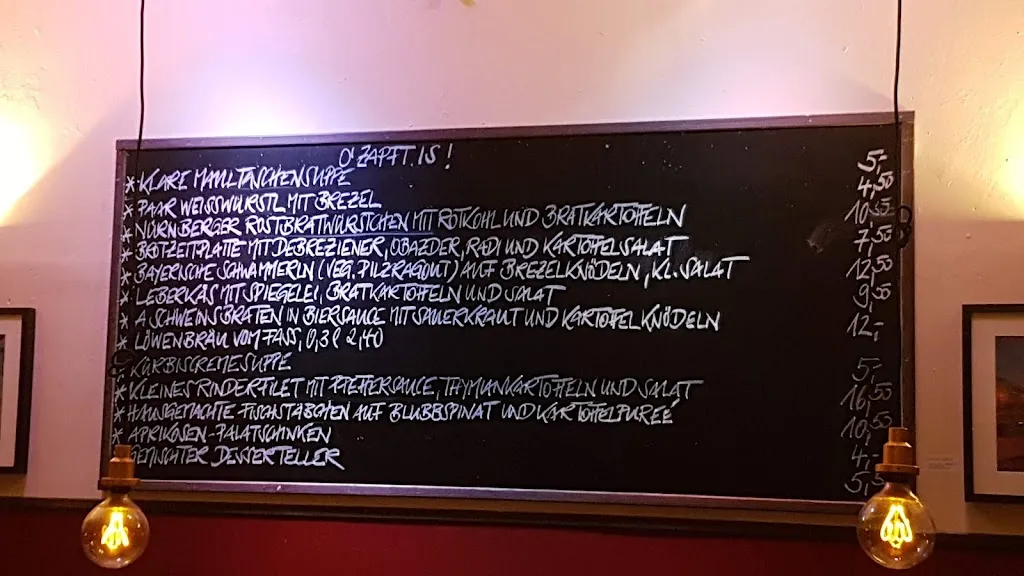 O' ZAPFT IS !
* KLARE MAULTASCHENSUPPE 5,-
* PAAR WEISSWÜRSTL MIT BREZEL 4,50
* NÜRNBERGER ROSTBRATWÜRSTCHEN MIT ROTKOHL UND BRATKARTOFFELN 10,50
* BROTZEITPLATTE MIT DEBREZIENER, OBAZDER, RADI UND KARTOFFELSALAT 7,50
* BAYERISCHE SCHWAMMERLN (VEG. PILZRAGOUT) AUF BREZELKNÖDELN, KL. SALAT 12,50
* LEBERKAS MIT SPIEGELEI, BRATKARTOFFELN UND SALAT 9,50
* A SCHWEINSBRATEN IN BIERSAUCE MIT SAUERKRAUT UND KARTOFFELKNÖDELN 12,-
* LÖWENBRÄU VOM FASS, 0,3 l 2,40
* KÜRBISCREMESUPPE 5,-
* KLEINES RINDERFILET MIT PFEFFERSAUCE, THYMIANKARTOFFELN UND SALAT 16,50
* HAUSGEMACHTE FISCHSTÄBCHEN AUF BLUBBSPINAT UND KARTOFFELPUREE 10,50
* APRIKOSEN-PALATSCHINKEN 4,-
* GEMISCHTER DESSERTTELLER